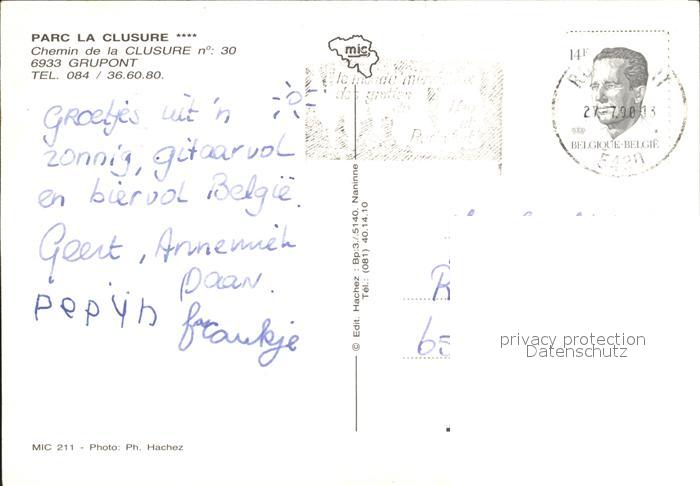 PARC LA CLUSURE ****
Chemin de la CLUSURE nº: 30
6933 GRUPONT
TEL. 084 / 36.60.80.
mic
14F
27-7.90 13
BELGIQUE-BELGIË
5430
Groetjes uit 'n
zonnig, gitaarvol
en biervol België.
Geert, Annemiek
Daan.
Pepijn
fraukje
© Edit. Hachez : Bp:3./5140. Naninne
Tél.: (081) 40.14.10
R
65
privacy protection
Datenschutz
MIC 211 - Photo: Ph. Hachez